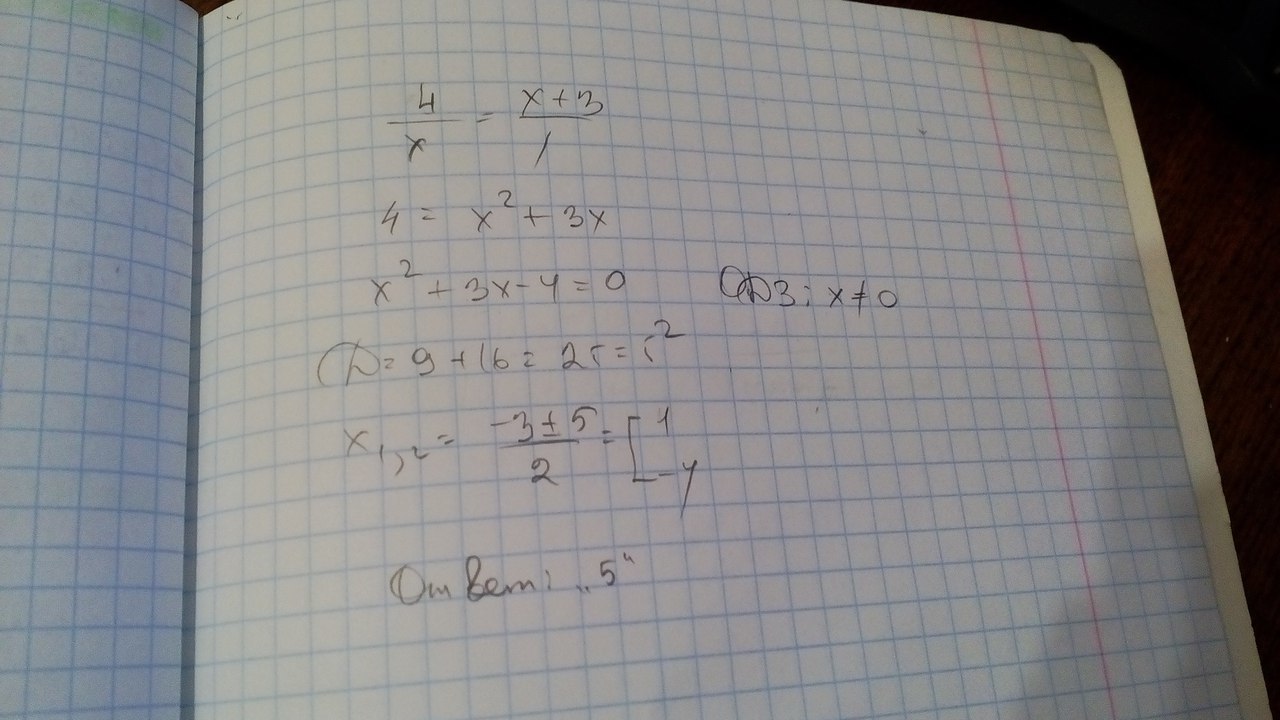 4/x = x+3/1
4 = x² + 3x
x² + 3x - 4 = 0 ОДЗ: x ≠ 0
D = 9 + 16 = 25 = 5²
x₁,₂ = -3 ± 5/2 = [1 -4
Ответ: „5“